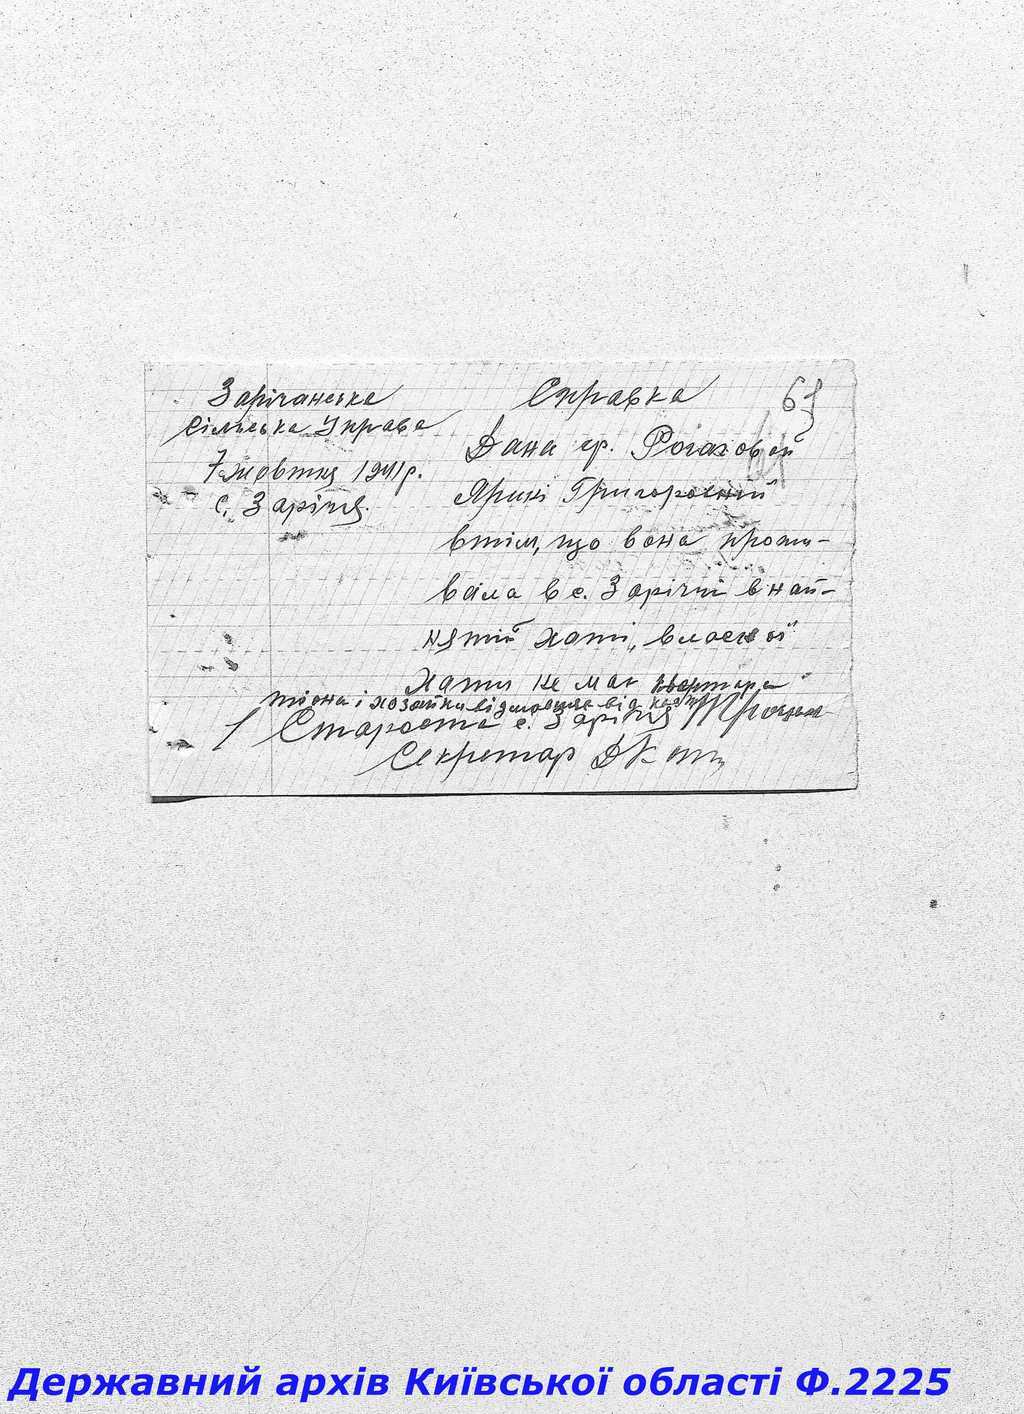 Зарічанська
сільська Управа
7 жовтня 1941 р.
с. Заріччя.
Справка 61
Дана гр. Рогаховой
Ярині Григоровній
втім, що вона прожи-
вала в с. Заріччі в най-
нятій хаті, власної
хати не має квартира
тісна і хозяйка відмовляє від
Староста с. Заріччя
Секретар
Державний архів Київської області Ф.2225